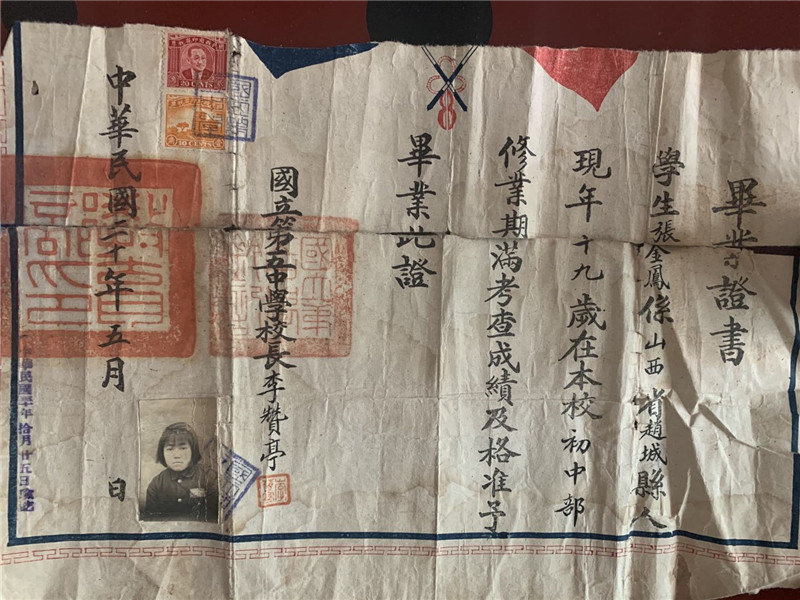 畢業證書
學生張金鳳係山西省趙城縣人
現年十九歲在本校初中部
修業期滿考查成績及格准予
畢業此證
國立第五中學校長李贊亭
中華民國三十年五月 日
20 CENTS
10 CENTS